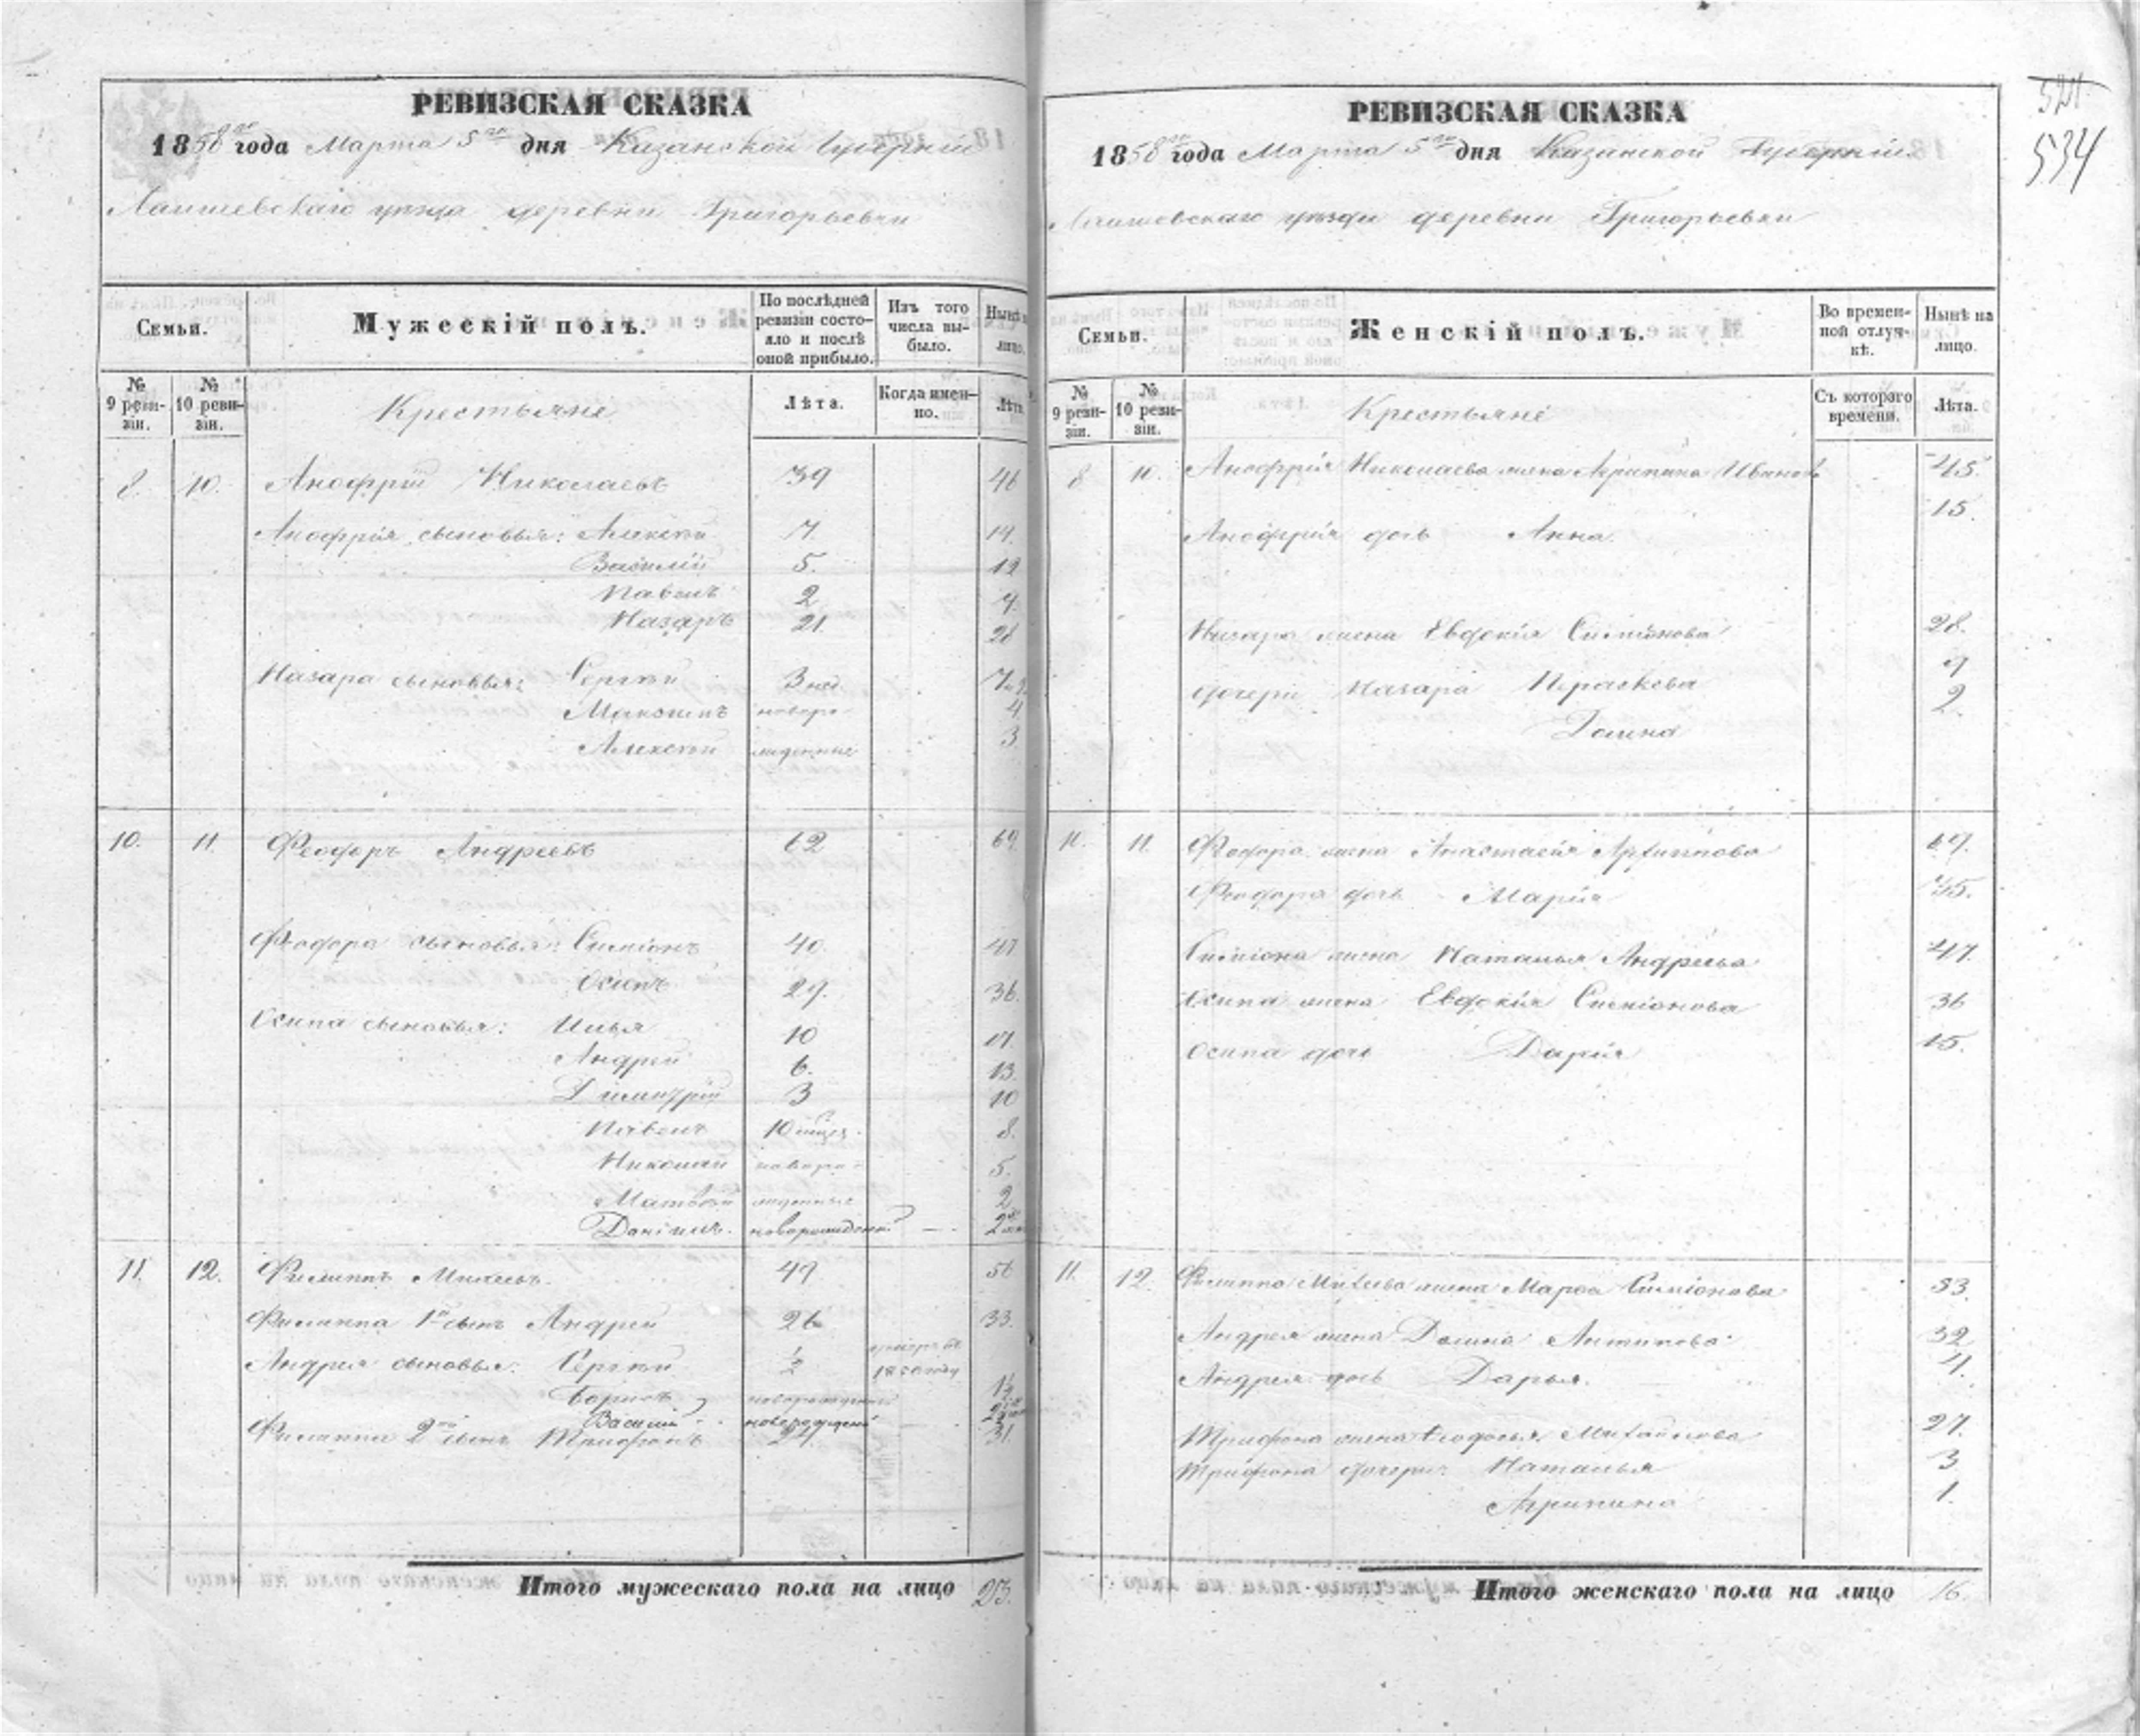 РЕВИЗСКАЯ СКАЗКА
1858го года Марта 5го дня Казанской Губерніи
Лаишевскаго уѣзда деревни Григорьевки
Семьи.
Мужескій полъ.
По послѣдней ревизіи состояло и послѣ оной прибыло.
Изъ того числа выбыло.
Нынѣ на лицо.
№ 9 ревизіи.
№ 10 ревизіи.
Крестьяне
Лѣта.
Когда именно.
Лѣта.
8. 10. Анофрій Николаевъ 39 46
Анофрія сыновья: Алексѣй 7. 14.
Василій 5. 12
Павелъ 2
Назаръ 21. 28
Назара сыновья: Сергѣй 3 нед.
Максимъ новоро- 4
Алексѣй жденные 3
10. 11 Феодоръ Андреевъ 62 69.
Феодора сыновья: Симіонъ 40. 47
Осипъ 29. 36.
Осипа сыновья: Илья 10 17.
Андрей 6. 13.
Димитрій 3 10
Павелъ 10 мѣсяц. 8.
Николай новоро- 5.
Матвѣй жденные 2
Данилъ. новорожденный
11. 12. Филиппъ Михеевъ. 49 56
Филиппа 1й сынъ Андрей 26 33.
Андрея сыновья: Сергѣй ½ 1850 году
Борисъ новорожденный
Василій новорожденый
Филиппа 2ой сынъ Трифонъ 24. 31.
Итого мужескаго пола на лицо 23.
534
РЕВИЗСКАЯ СКАЗКА
1858го года Марта 5го дня Казанской Губерніи
Лаишевскаго уѣзда деревни Григорьевки
Семьи.
Женскій полъ.
Во временной отлучкѣ.
Нынѣ на лицо.
№ 9 ревизіи.
№ 10 ревизіи.
Крестьяне
Съ котораго времени.
Лѣта.
8 10. Анофрія Николаева жена Агрипина Иванов 45.
Анофрія дочь Анна 15.
Назара жена Евдокія Симіонова 28.
дочери Назара Параскева 9
Домна 2.
11. Феодора жена Анастасія Архиппова 69.
Феодора дочь Марія 35.
Симіона жена Наталья Андреева 47.
Осипа жена Евдокія Симіонова 36
Осипа дочь Дарія 15.
11. 12. Филиппа Михеева жена Марѳа Симіонова 53.
Андрея жена Домна Антипова 32
Андрея дочь Дарья. 4.
Трифона жена Ѳеодосья Михайлова 27.
Трифона дочери: Наталья 3
Агрипина 1.
Итого женскаго пола на лицо 16.